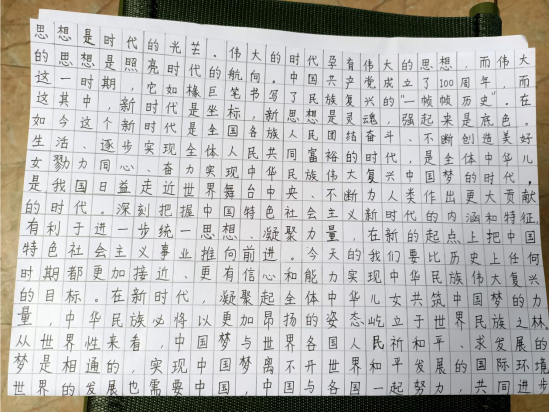 思想是时代的光芒。伟大的时代孕育伟大的思想，而伟大
的思想是照亮时代的航向。中国共产党成立了100周年，而
这一时期，它如椽巨笔书写了民族复兴的"一帧帧历史"。在
这其中，新时代是坐标，新思想是灵魂，强起来是底色。
如今这个新时代是全国各族人民团结奋斗、不断创造美好
生活、逐步实现全体人民共同富裕的时代，是全体中华儿
女勠力同心、奋力实现中华民族伟大复兴中国梦的时代，
是我国日益走近世界舞台中央、不断为人类作出更大贡献
的时代。深刻把握中国特色社会主义新时代的内涵和特征，
有利于进一步统一思想、凝聚力量，在新的起点上把中国
特色社会主义事业推向前进。今天的我们要比历史上任何
时期都更加接近、更有信心和能力实现中华民族伟大复兴
的目标。在新时代，凝聚起全体中华儿女共筑中国梦的力
量，中华民族必将以更加昂扬的姿态屹立于世界民族之林
从世界性来看，中国梦与世界各国人民祈和平、求发展的
梦是相通的，实现中国梦离不开世界和平发展的国际环境
世界的发展也需要中国，中国与各国一起努力，共同进步